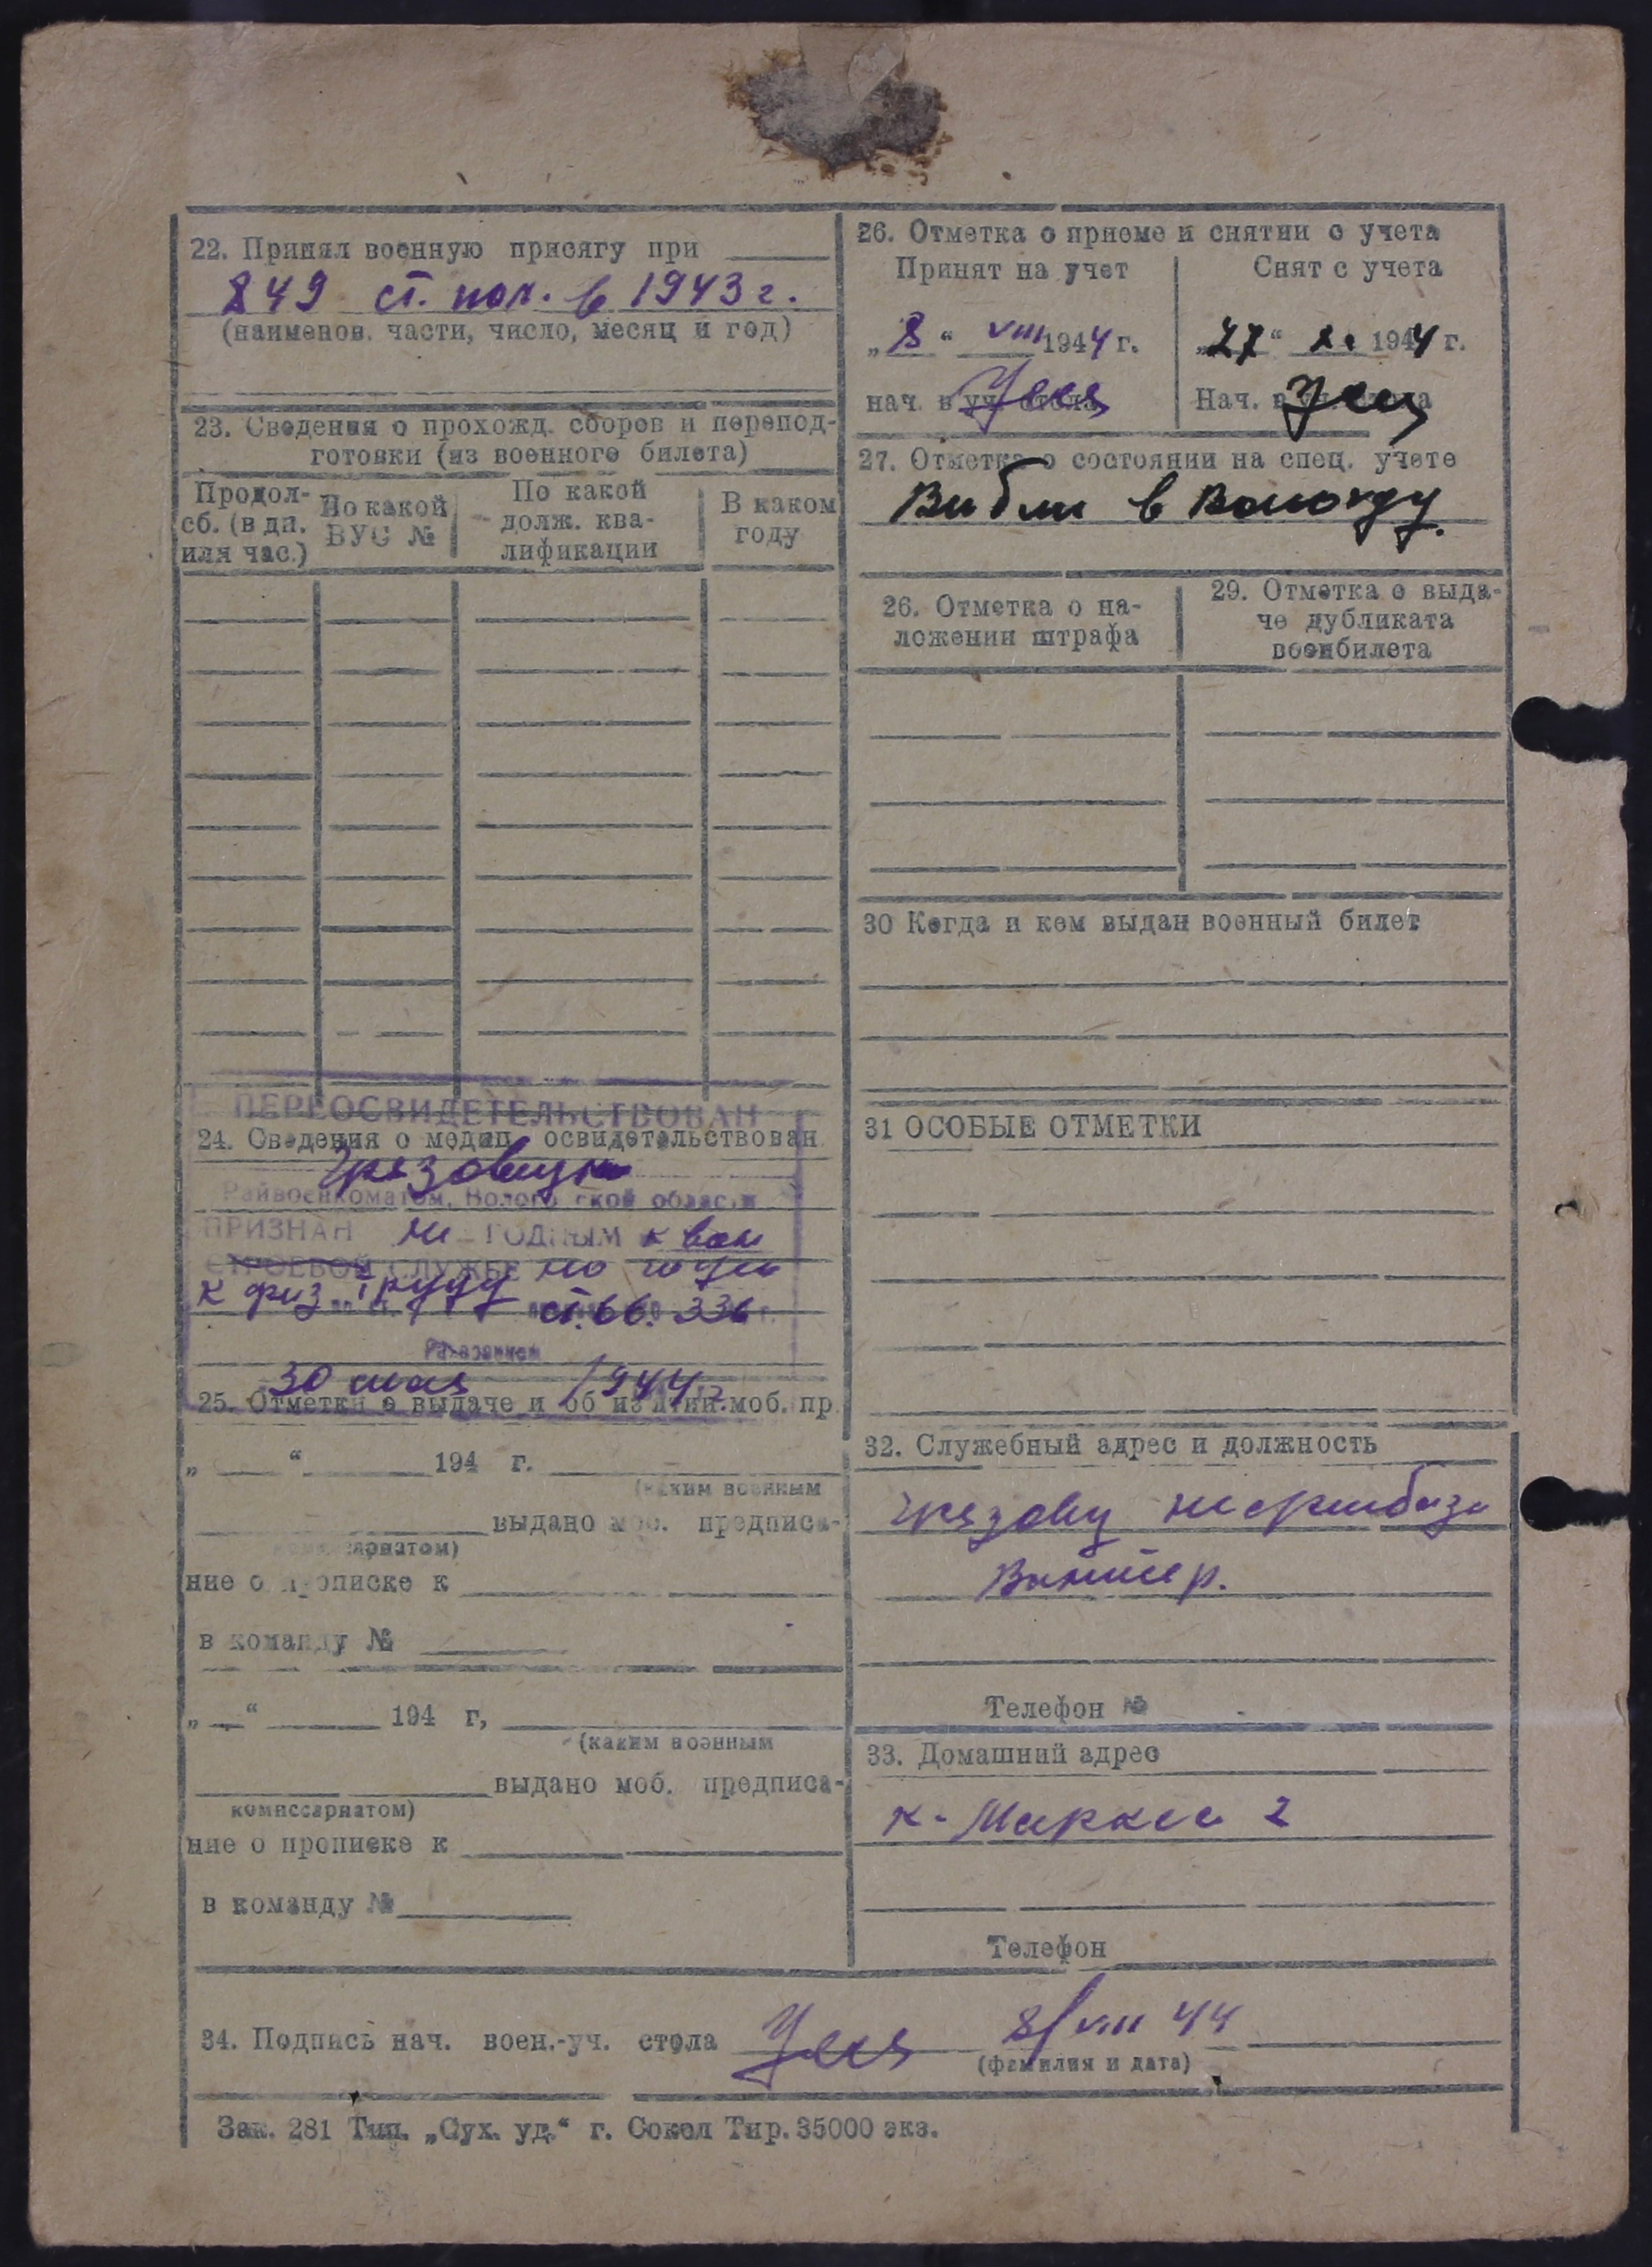 22. Принял военную присягу при
849 ст. пол. в 1943 г.
(наименов. части, число, месяц и год)
23. Сведения о прохожд. сборов и перепод-
готовки (из военного билета)
Продол-
сб. (в дн.
или час.)
По какой
ВУС №
По какой
долж. ква-
лификации
В каком
году
ПЕРЕОСВИДЕТЕЛЬСТВОВАН
24. Сведения о медиц. освидетельствован
Грязовецким
Райвоенкоматом, Вологодской области
ПРИЗНАН не ГОДНЫМ к воен
СТРОЕВОЙ СЛУЖБЕ но годен
к физ. труду ст. 66. 336
30 мая 1944 г.
25. Отметки о выдаче и об из'ятии моб. пр.
„ “ 194 г.
(каким военным
выдано моб. предписа-
комиссариатом)
ние о прописке к
в команду №
„ “ 194 г,
(каким военным
выдано моб. предписа-
комиссариатом)
ние о прописке к
в команду №
26. Отметка о приеме и снятии с учета
Принят на учет
Снят с учета
„8“ VIII 1944 г.
„27“ X. 1944 г.
нач. в уч. стола
Нач. в уч. стола
27. Отметка о состоянии на спец. учете
Выбыл в Вологду.
26. Отметка о на-
ложении штрафа
29. Отметка о выда-
че дубликата
военбилета
30 Когда и кем выдан военный билет
31 ОСОБЫЕ ОТМЕТКИ
32. Служебный адрес и должность
Грязовец нефтебаза
Телефон №
33. Домашний адрес
К. Маркса 2
Телефон
34. Подпись нач. воен.-уч. стола 8/VIII 44
(фамилия и дата)
Зак. 281 Тип. „Сух. уд.“ г. Сокол Тир. 35000 экз.